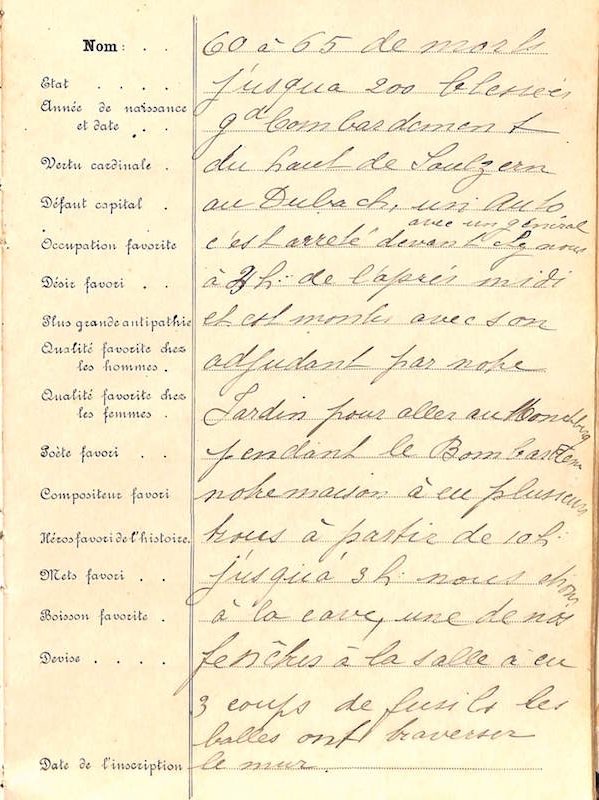 Nom: . . 60 à 65 de morts
Etat . . . . jusqua 200 blessées
Année de naissance
et date . . gd bombardement
Vertu cardinale . du haut de Soulzern
Défaut capital . au Dubach, un Auto
avec un général
Occupation favorite c'est arreté devant chez nous
Désir favori . . à 2h. de l'après midi
Plus grande antipathie et est monté avec son
Qualité favorite chez
les hommes . adjudant par notre
Qualité favorite chez
les femmes . Jardin pour aller au
Poète favori . . pendant le Bombardem
Compositeur favori notre maison à eu plusieurs
Héros favori de l'histoire. trous à partir de 10h.
Mets favori . . jusqu'à 3h. nous étions
Boisson favorite . à la cave, une de nos
Devise . . . . fenêtres à la salle à eu
3 coups de fusils les
balles ont traverser
Date de l'inscription le mur.